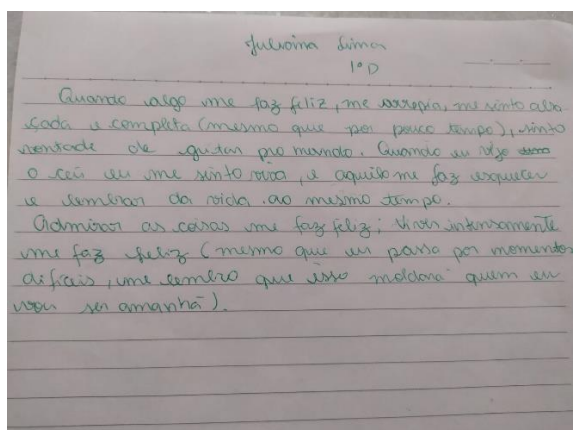 Juliana Lima
1º D
Quando algo me faz feliz, me arrepia, me sinto abra
çada e completa (mesmo que por pouco tempo), sinto
vontade de gritar pro mundo. Quando eu vejo
o céu eu me sinto viva, e aquilo me faz esquecer
e lembrar da vida ao mesmo tempo.
Admirar as coisas me faz feliz; viver intensamente
me faz feliz (mesmo que eu passa por momentos
difíceis, me lembro que isso moldará quem eu
vou ser amanhã).